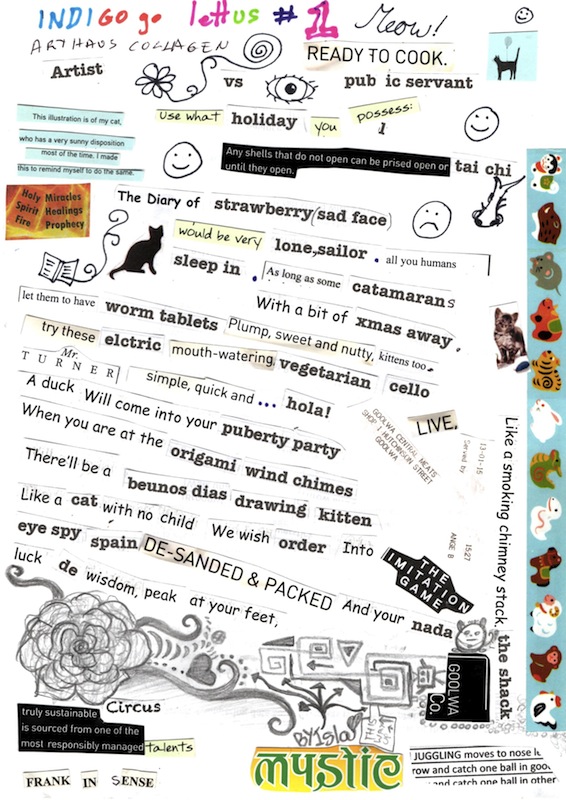 INDIGO go lettus #1 Meow!
ARTHAUS COLLAGEN
READY TO COOK.
Artist vs pub ic servant
use what holiday you possess:
This illustration is of my cat,
who has a very sunny disposition
most of the time. I made
this to remind myself to do the same.
Any shells that do not open can be prised open or
until they open.
tai chi
Holy Miracles
Spirit Healings
Fire Prophecy
The Diary of strawberry (sad face)
would be very lone,sailor . all you humans
sleep in . As long as some catamarans
With a bit of xmas away.
let them to have worm tablets Plump, sweet and nutty, kittens too.
try these elctric mouth-watering vegetarian cello
Mr.
TURNER simple, quick and ... hola!
A duck Will come into your puberty party
When you are at the origami wind chimes
There'll be a beunos dias drawing kitten
Like a cat with no child We wish order Into
eye spy spain DE-SANDED & PACKED And your nada
luck de wisdom, peak at your feet,
LIVE.
GOOLWA CENTRAL MEATS
SHOP 1 HUTCHINSON STREET
GOOLWA
13-01-15 15:27
Served by ANGE B
THE
IMITATION
GAME
Like a smoking chimney stack, the shack
GOOLWA
Co.
Circus
truly sustainable
is sourced from one of the
most responsibly managed talents
By Isla
mystic
FRANK IN SENSE
JUGGLING moves to nose
row and catch one ball in
and catch one ball in other